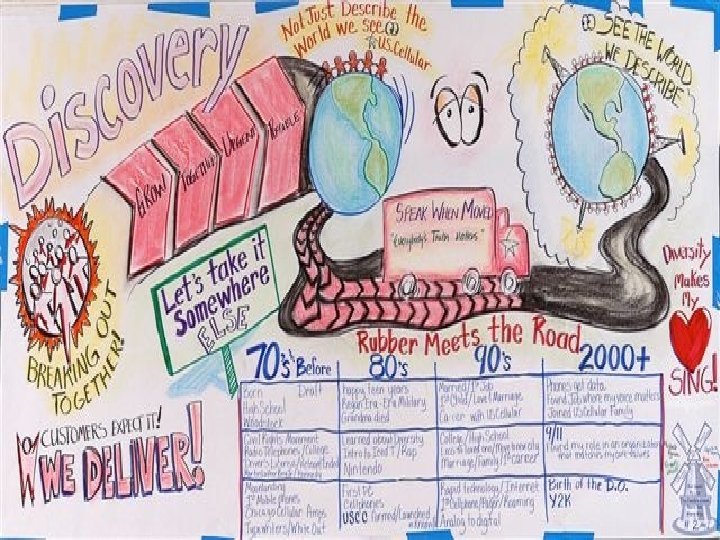 Discovery
Not Just Describe the
World we see
US Cellular
SEE THE WORLD
WE DESCRIBE
GROW
TOGETHER
SPEAK WHEN MOVED
"Everybody's Truth Matters"
Let's take it
Somewhere
ELSE
BREAKING OUT
TOGETHER!
Rubber Meets the Road
Diversity
Makes
My
SING!
CUSTOMERS EXPECT IT!
WE DELIVER!
70's & Before
80's
90's
2000+
Born Draft
High School
Woodstock
Happy teen years
Regan Era - Era Military
Grandma died
Married/1st Job
1st Child/Love/Marriage
Career with US Cellular
Phones get data
Found Job where my voice matters
Joined US Cellular Family
Civil Rights Movement
Radio Telephones/College
Learned about Diversity
Intro to Seed T/Rap
Nintendo
College/High School
Marriage/Family/1st career
9/11
Found my role in an organization
that matches my core values
Moonlanding
1st Mobile phones
Chicago Cellular
Typewriters/White Out
First PC
Cellphones
USCC Formed/Launched
Rapid technology/Internet
1st Cellphone/Pager/Roaming
Analog to digital
Birth of the D.O.
Y2K